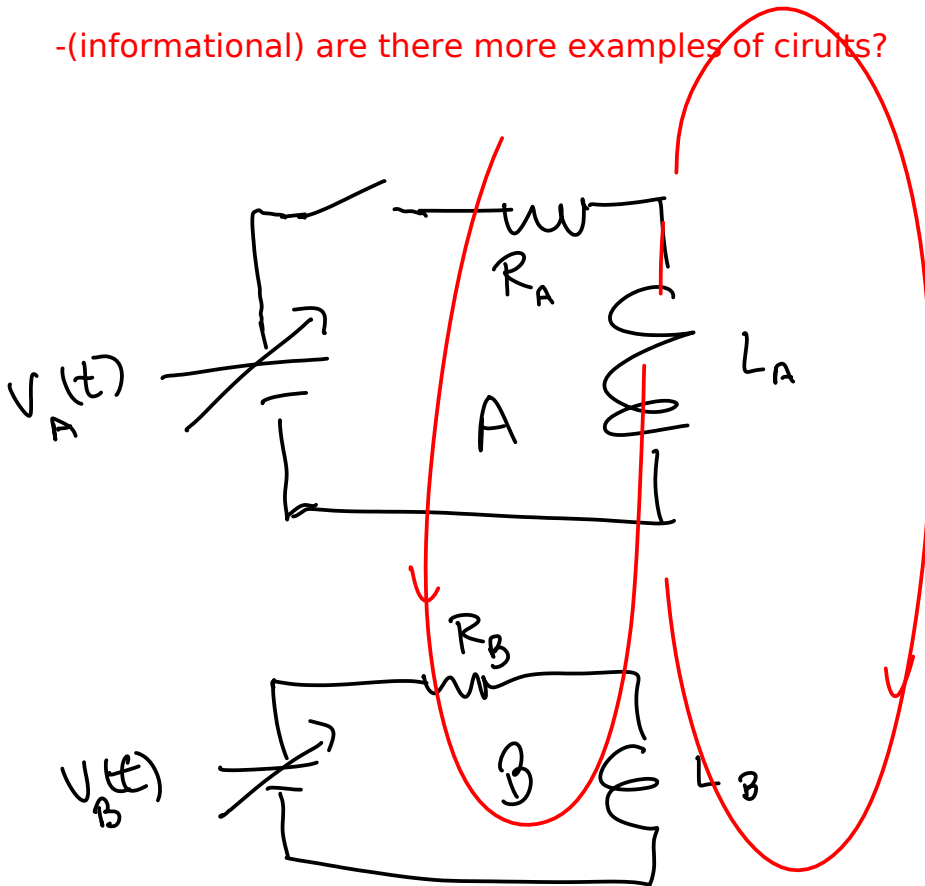 -(informational) are there more examples of ciruits?
R_A
V_A(t)
L_A
A
R_B
V_B(t)
B
L_B